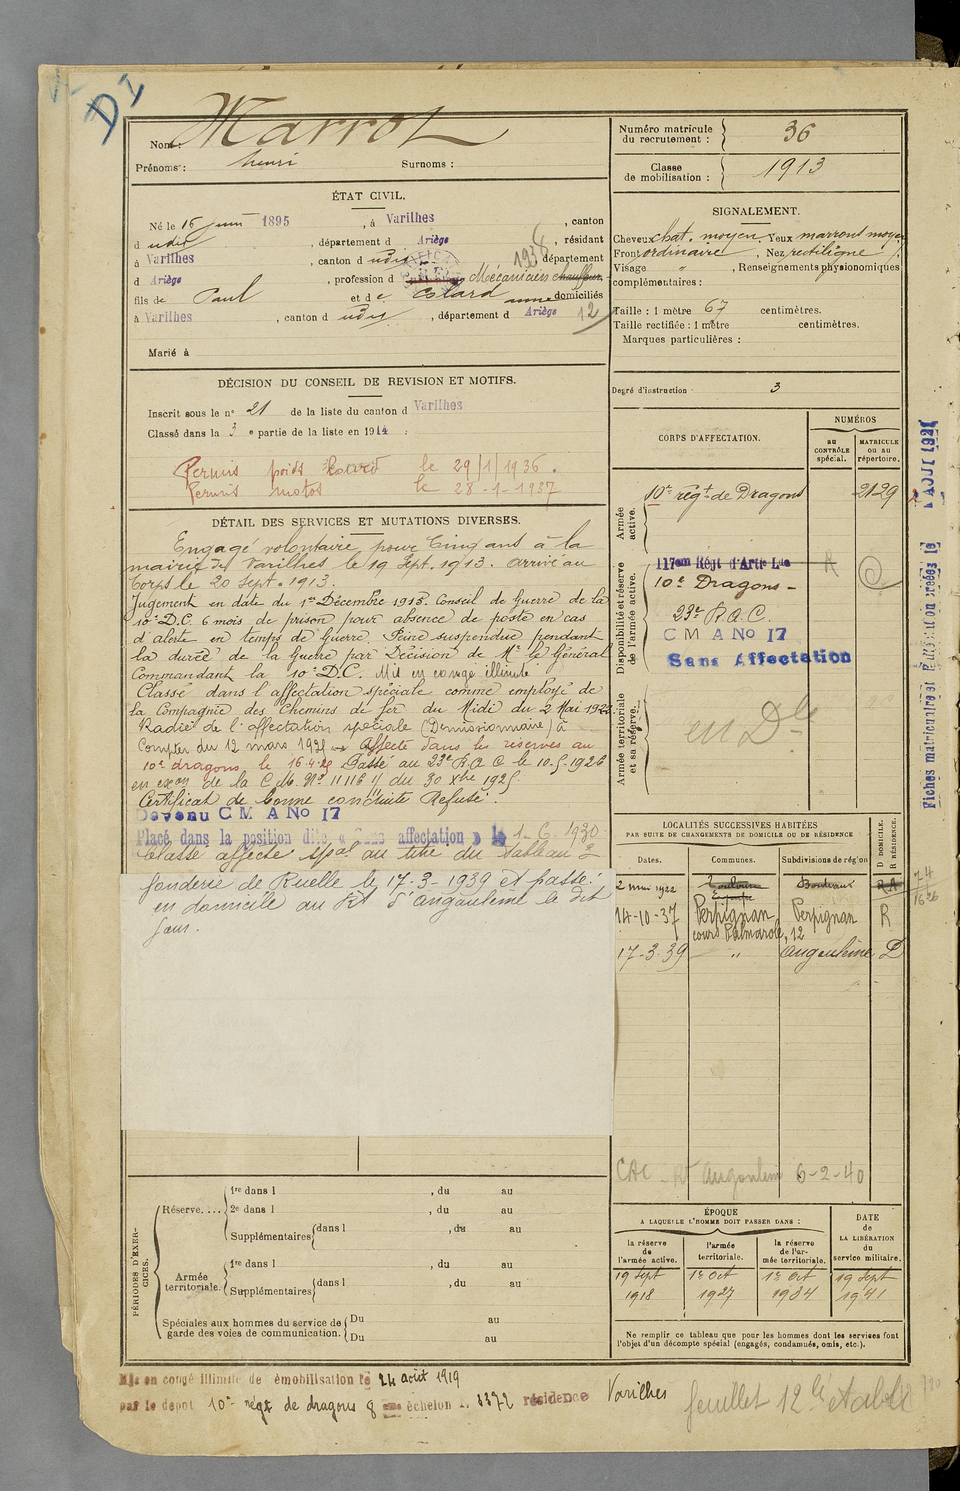 D I
Nom : Marrot
Prénoms : henri Surnoms :
ÉTAT CIVIL.
Né le 15 juin 1895, à Varilhes, canton
d udit, département d Ariège, résidant
à Varilhes, canton d udit, département
d Ariège, profession d Mécanicien chauffeur 1938
fils de Paul et de anne domiciliés
à Varilhes, canton d udit, département d Ariège 12
Marié à
DÉCISION DU CONSEIL DE REVISION ET MOTIFS.
Inscrit sous le n° 21 de la liste du canton d Varilhes
Classé dans la 3e partie de la liste en 1914 :
Permis poids lourd le 29/1/1936.
Permis motos le 28-1-1937
DÉTAIL DES SERVICES ET MUTATIONS DIVERSES.
Engagé volontaire pour Cinq ans à la
mairie de Varilhes le 19 Sept. 1913. arrivé au
Corps le 20 Sept. 1913.
Jugement en date du 1er Décembre 1913. Conseil de Guerre de la
10e D.C. 6 mois de prison pour absence de poste en cas
d'alerte en temps de Guerre. Peine suspendue pendant
la durée de la Guerre par Décision de Mr le Général
Commandant la 10e D.C. Mis en congé illimité
Classé dans l'affectation spéciale comme employé de
la Compagnie des Chemins de fer du Midi du 2 Mai 1922.
Radié de l'affectation spéciale (Démissionnaire) à
Compter du 12 mars 1925 Affecté dans les réserves au
10e dragons le 16.4.25 Passé au 23e R.A.C le 10.5.1926
en exon de la C.M. No 11116 1/ du 30 Xbre 1925
Certificat de bonne conduite Refusé.
Devenu C M A No 17
Placé dans la position dite « Sans affectation » le 1-6-1930
Classé affecté spal au titre du Tableau 2
fonderie de Ruelle le 17-3-1939 et passé
en domicile au Rt d'angoulême le dit
jour.
PÉRIODES D'EXERCICES.
Réserve.... 1re dans l , du au
2e dans l , du au
Supplémentaires dans l , du au
Armée territoriale. 1re dans l , du au
Supplémentaires dans l , du au
Spéciales aux hommes du service de garde des voies de communication. Du au
Du au
Numéro matricule du recrutement : 36
Classe de mobilisation : 1913
SIGNALEMENT.
Cheveux chat. moyen. Yeux marrons moyen
Front ordinaire, Nez rectiligne
Visage " , Renseignements physionomiques
complémentaires :
Taille : 1 mètre 67 centimètres.
Taille rectifiée : 1 mètre centimètres.
Marques particulières :
Degré d'instruction 3
CORPS D'AFFECTATION.
NUMÉROS
au CONTRÔLE spécial.
MATRICULE ou au répertoire.
Armée active.
10e régt de Dragons 2129
Disponibilité et réserve de l'armée active.
117eme Régt d'Artie Lde R
10e Dragons -
23e R.A.C.
C M A No 17
Sans Affectation
Armée territoriale et sa réserve.
en Dle
LOCALITÉS SUCCESSIVES HABITÉES
PAR SUITE DE CHANGEMENTS DE DOMICILE OU DE RÉSIDENCE
Dates. Communes. Subdivisions de région D DOMICILE. R RÉSIDENCE.
2 mai 1922 Toulouse Bordeaux
14-10-37 Perpignan Perpignan R
cours Palmarole, 12
17-3-39 " angoulême D
CAC Rt Angoulem 6-2-40
ÉPOQUE
A LAQUELLE L'HOMME DOIT PASSER DANS :
la réserve de l'armée active.
l'armée territoriale.
la réserve de l'armée territoriale.
DATE de LA LIBÉRATION du service militaire.
19 Sept 1er Oct 1er Oct 19 Sept
1918 1927 1934 1941
Ne remplir ce tableau que pour les hommes dont les services font
l'objet d'un décompte spécial (engagés, condamnés, omis, etc.).
Mis en congé illimité de démobilisation le 24 août 1919
par le depot 10e régt de dragons 8 eme échelon n. 3372 résidence Varilhes
feuillet 12